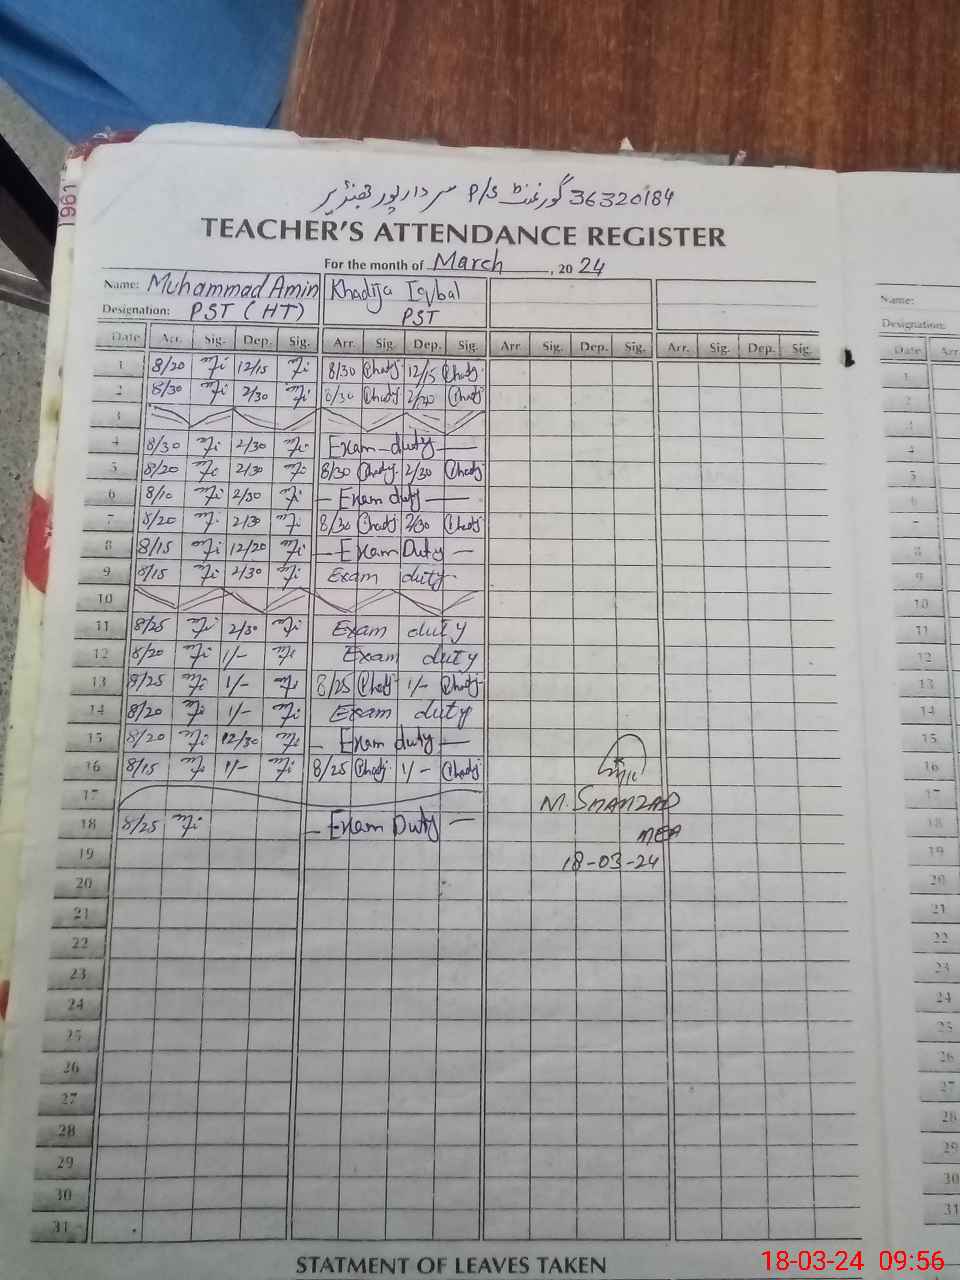 36320184 گورنمنٹ P/S سردار پور جھنڈیر
TEACHER'S ATTENDANCE REGISTER
For the month of March, 2024
Name: Muhammad Amin Khadija Iqbal Name:
Designation: PST (HT) PST Designation:
Date Arr. Sig. Dep. Sig. Arr. Sig. Dep. Sig. Arr. Sig. Dep. Sig. Arr. Sig. Dep. Sig. Date Arr
1 8/20 12/15 8/30 12/15 1
2 8/30 2/30 8/30 2/20 2
3 3
4 8/30 2/30 Exam duty 4
5 8/20 2/30 8/30 2/30 5
6 8/10 2/30 Exam duty 6
7 8/20 2/30 8/30 2/30 7
8 8/15 12/20 Exam Duty 8
9 8/15 2/30 Exam duty 9
10 10
11 8/25 2/30 Exam duty 11
12 8/20 1/- Exam duty 12
13 8/25 1/- 8/25 1/- 13
14 8/20 1/- Exam duty 14
15 8/20 12/30 Exam duty 15
16 8/15 1/- 8/25 1/- 16
17 M. SHAHZAD 17
18 8/25 Exam Duty MEA 18
19 18-03-24 19
20 20
21 21
22 22
23 23
24 24
25 25
26 26
27 27
28 28
29 29
30 30
31 31
STATMENT OF LEAVES TAKEN
18-03-24 09:56
1961